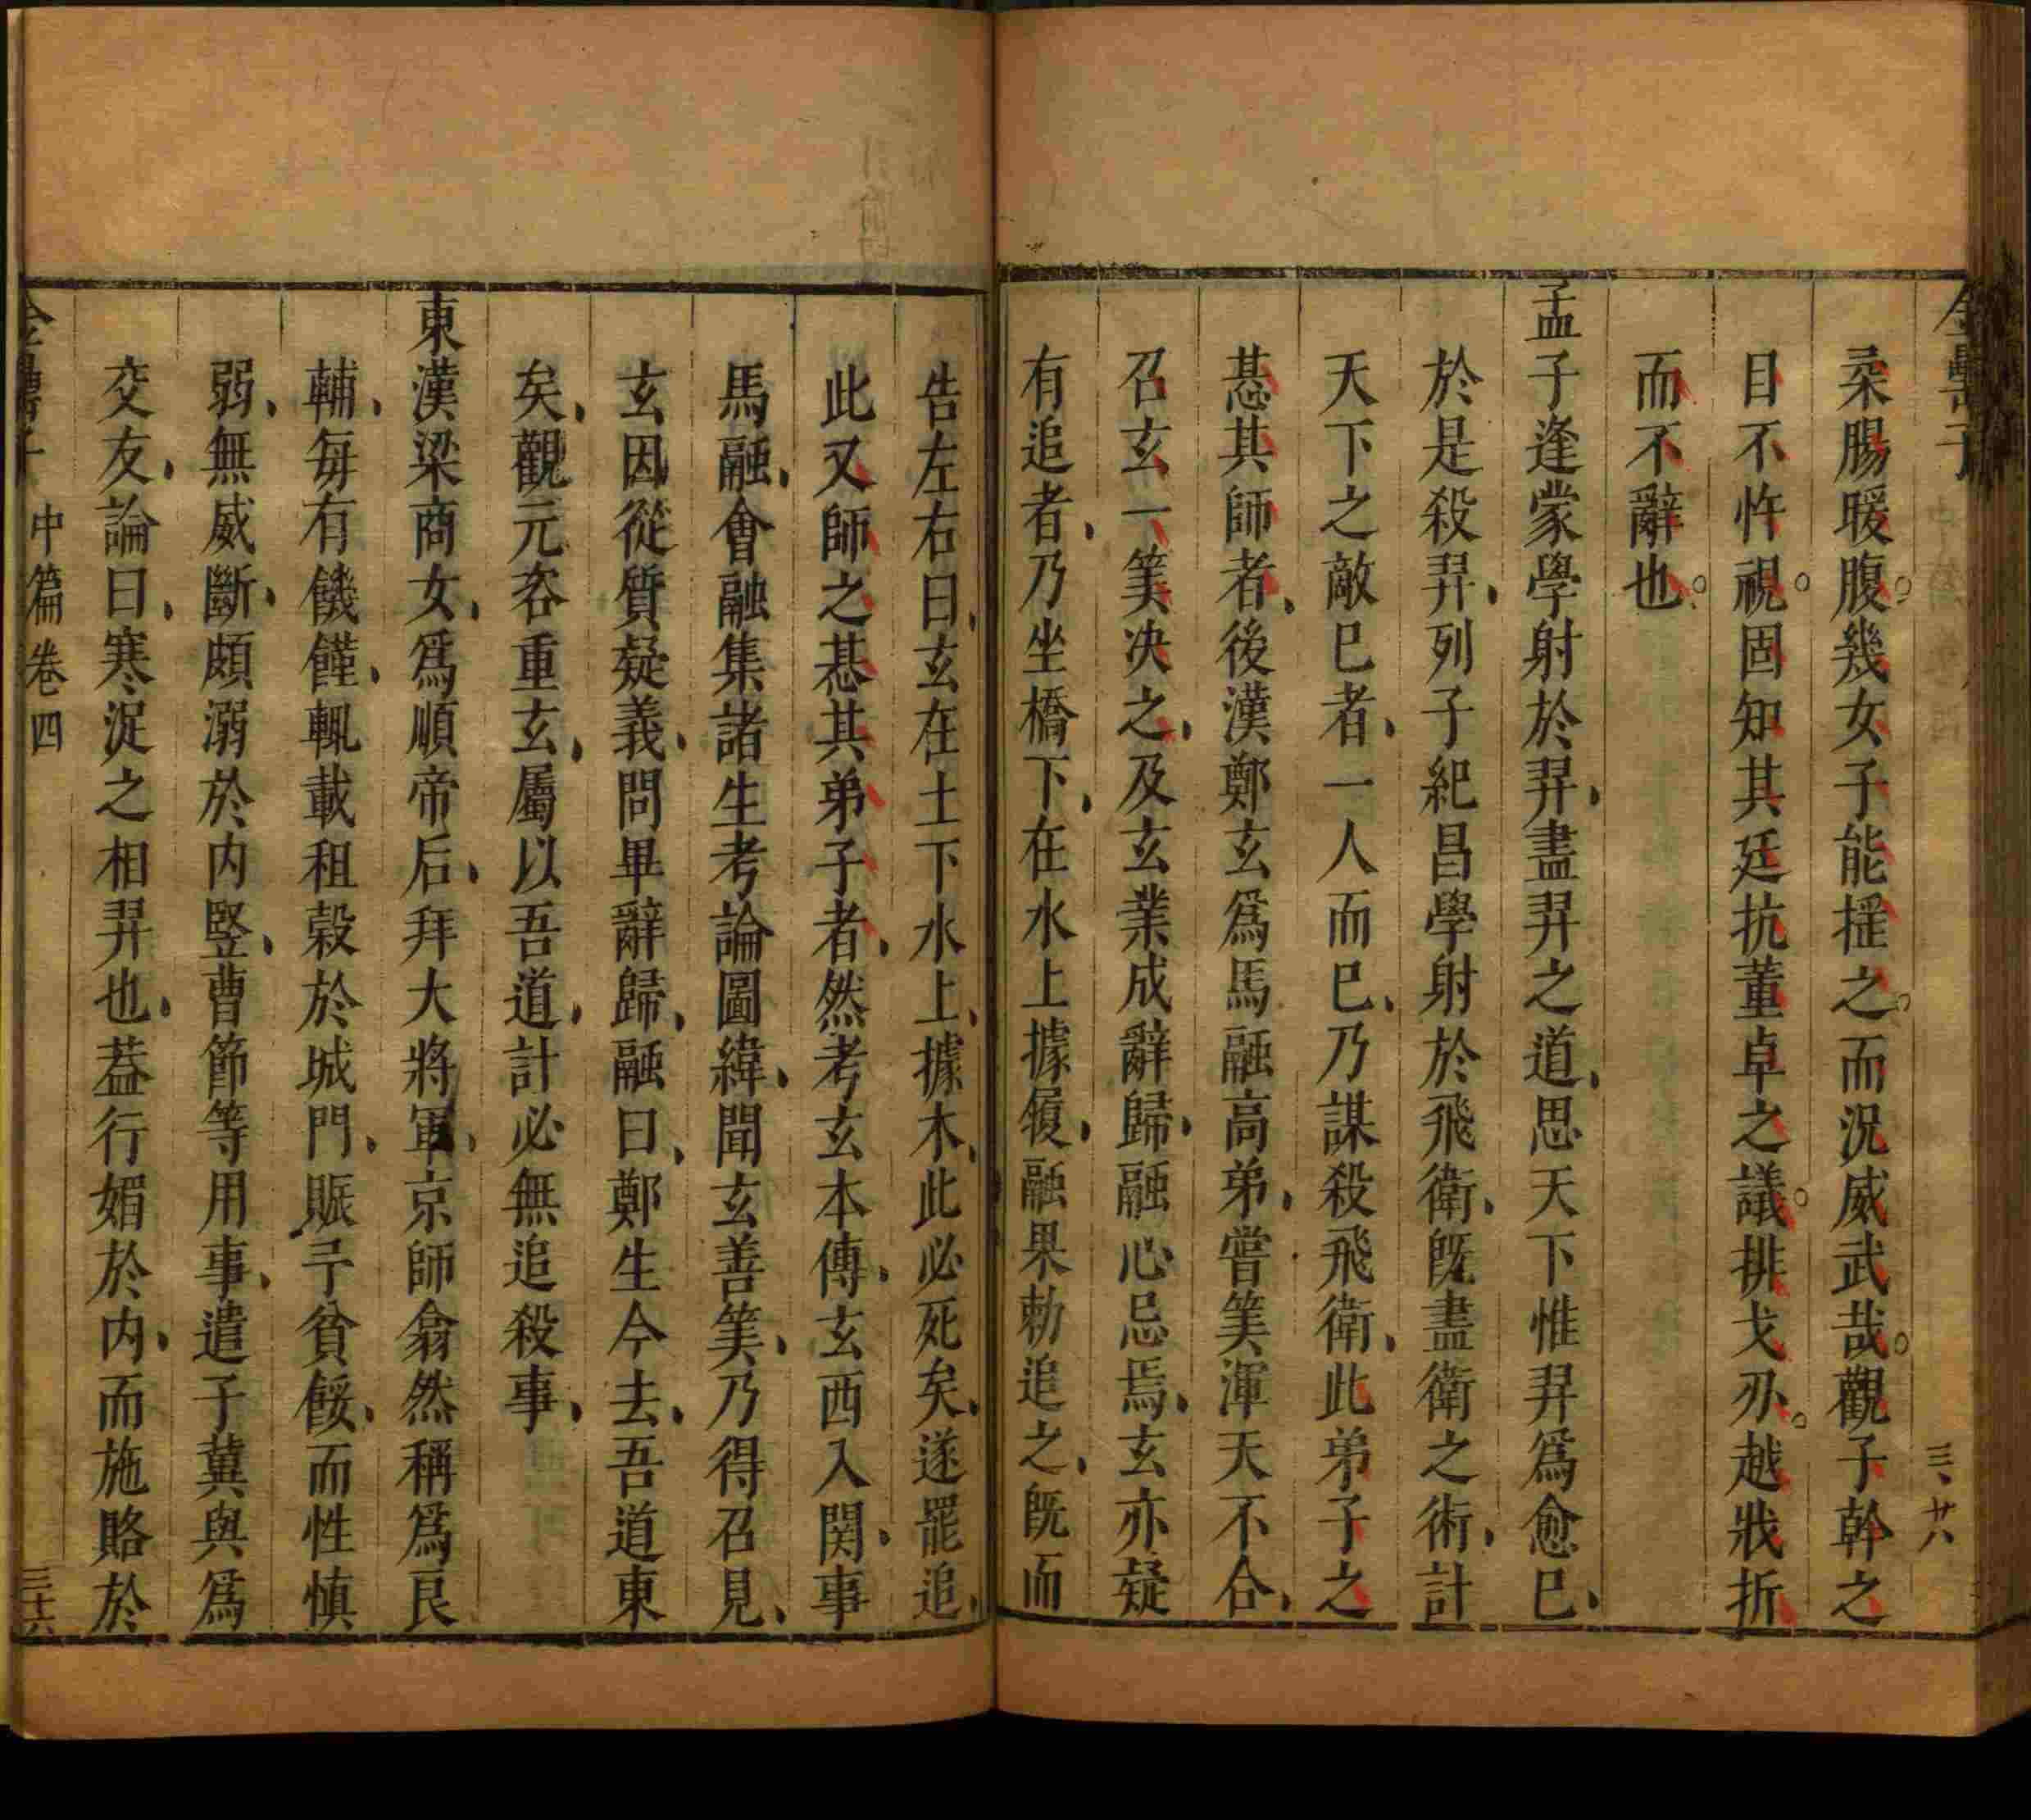 柔腸暖腹幾女子能摇之而況威武哉觀子幹之
目不忤視固知其廷抗董卓之議排戈刃越戕折
而不辭也
孟子逢蒙學射於羿盡羿之道思天下惟羿爲愈已
於是殺羿列子紀昌學射於飛衛旣盡衛之術計
天下之敵已者一人而已乃謀殺飛衛此弟子之
惎其師者後漢鄭玄爲馬融高弟嘗筭渾天不合
召玄一筭決之及玄業成辭歸融心忌焉玄亦疑
有追者乃坐橋下在水上據履融果勑追之旣而
告左右曰玄在土下水上據木此必死矣遂罷追
此又師之惎其弟子者然考玄本傳玄西入関事
馬融會融集諸生考論圖緯聞玄善筭乃得召見
玄因從質疑義問畢辭歸融曰鄭生今去吾道東
矣觀元吝重玄屬以吾道計必無追殺事
東漢梁商女爲順帝后拜大將軍京師翕然稱爲良
輔每有饑饉輒載租穀於城門賑予貧餒而性慎
弱無威斷頗溺於内竪曹節等用事遣子冀與爲
交友論曰寒浞之相羿也葢行媚於内而施賂於
中篇卷四
三十六
三、廿六